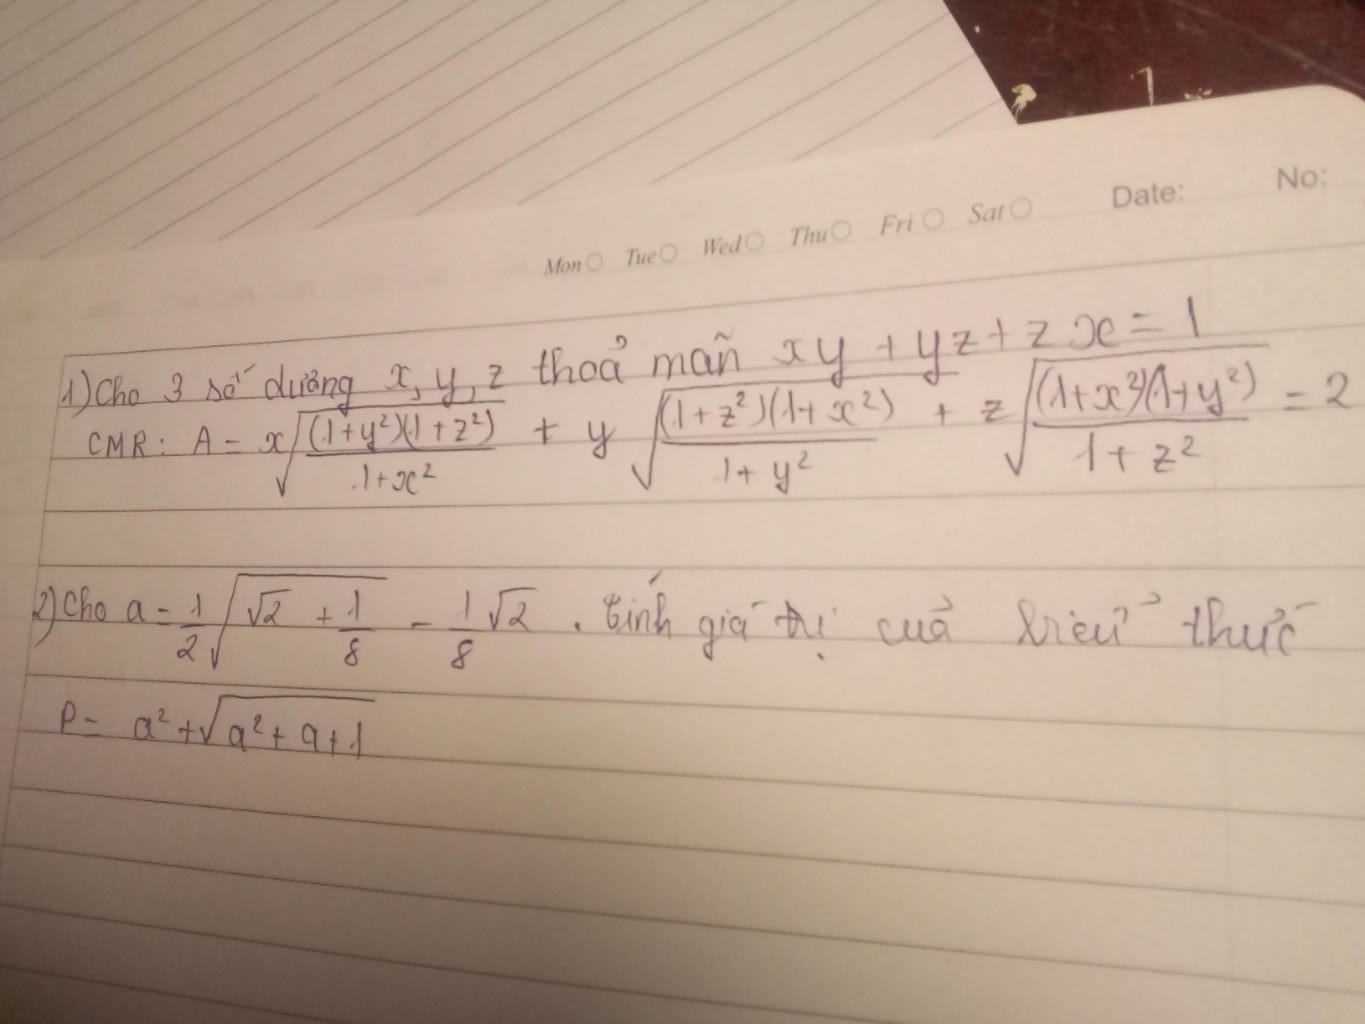 Mon Tue Wed Thu Fri Sat Date: No:
1) Cho 3 số dương x, y, z thoả mãn xy + yz + zx = 1
CMR: A = x√((1+y²)(1+z²)/(1+x²)) + y√((1+z²)(1+x²)/(1+y²)) + z√((1+x²)(1+y²)/(1+z²)) = 2
2) Cho a = 1/2 √(√2 + 1/8) - 1/8 √2 . tính giá trị của biểu thức
P = a² + √(a² + a + 1)